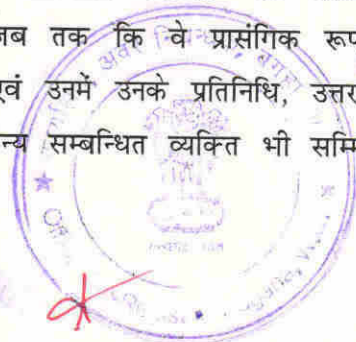 जब तक कि वे प्रासंगिक रूप
एवं उनमें उनके प्रतिनिधि, उत्तर
न्य सम्बन्धित व्यक्ति भी सम्मि